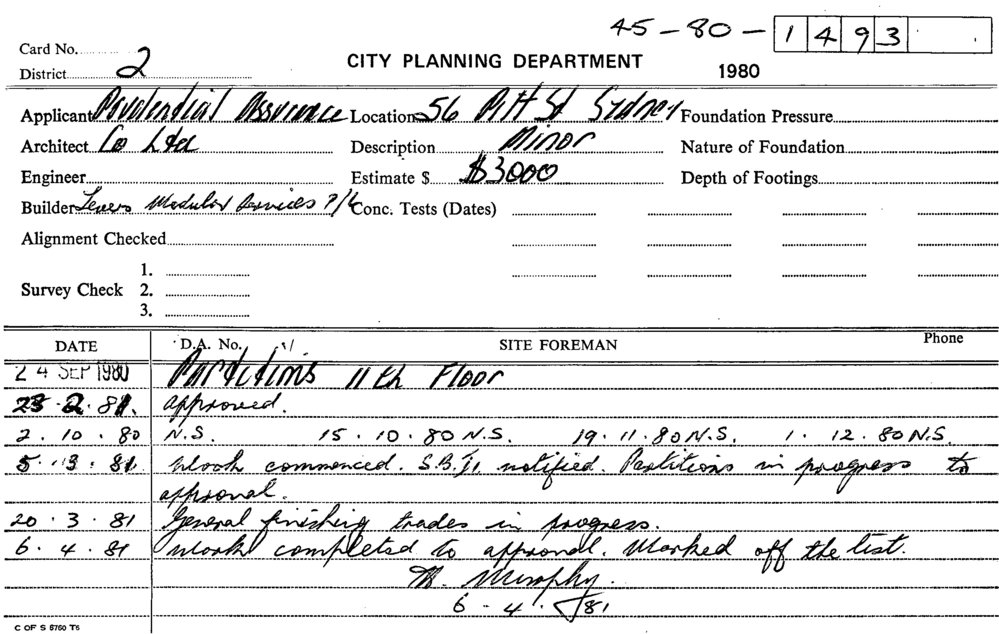 45-80-1493
Card No.
District 2
CITY PLANNING DEPARTMENT
1980
Applicant Prudential Assurance Location 56 Pitt St Sydney Foundation Pressure
Architect Co Ltd Description Minor Nature of Foundation
Engineer Estimate $ $3000 Depth of Footings
Builder Levers Modular Services P/L Conc. Tests (Dates)
Alignment Checked
1.
Survey Check 2.
3.
DATE D.A. No. SITE FOREMAN Phone
24 SEP 1980 Partitions 11th Floor
2.81. approved.
2.10.80 N.S. 15.10.80 N.S. 19.11.80 N.S. 1.12.80 N.S.
5.3.81. Work commenced. notified. Partitions in progress to
approval.
20.3.81 General finishing trades in progress.
6.4.81 Work completed to approval. Marked off the list.
M. Murphy.
6-4-81
C OF S 6760 T5